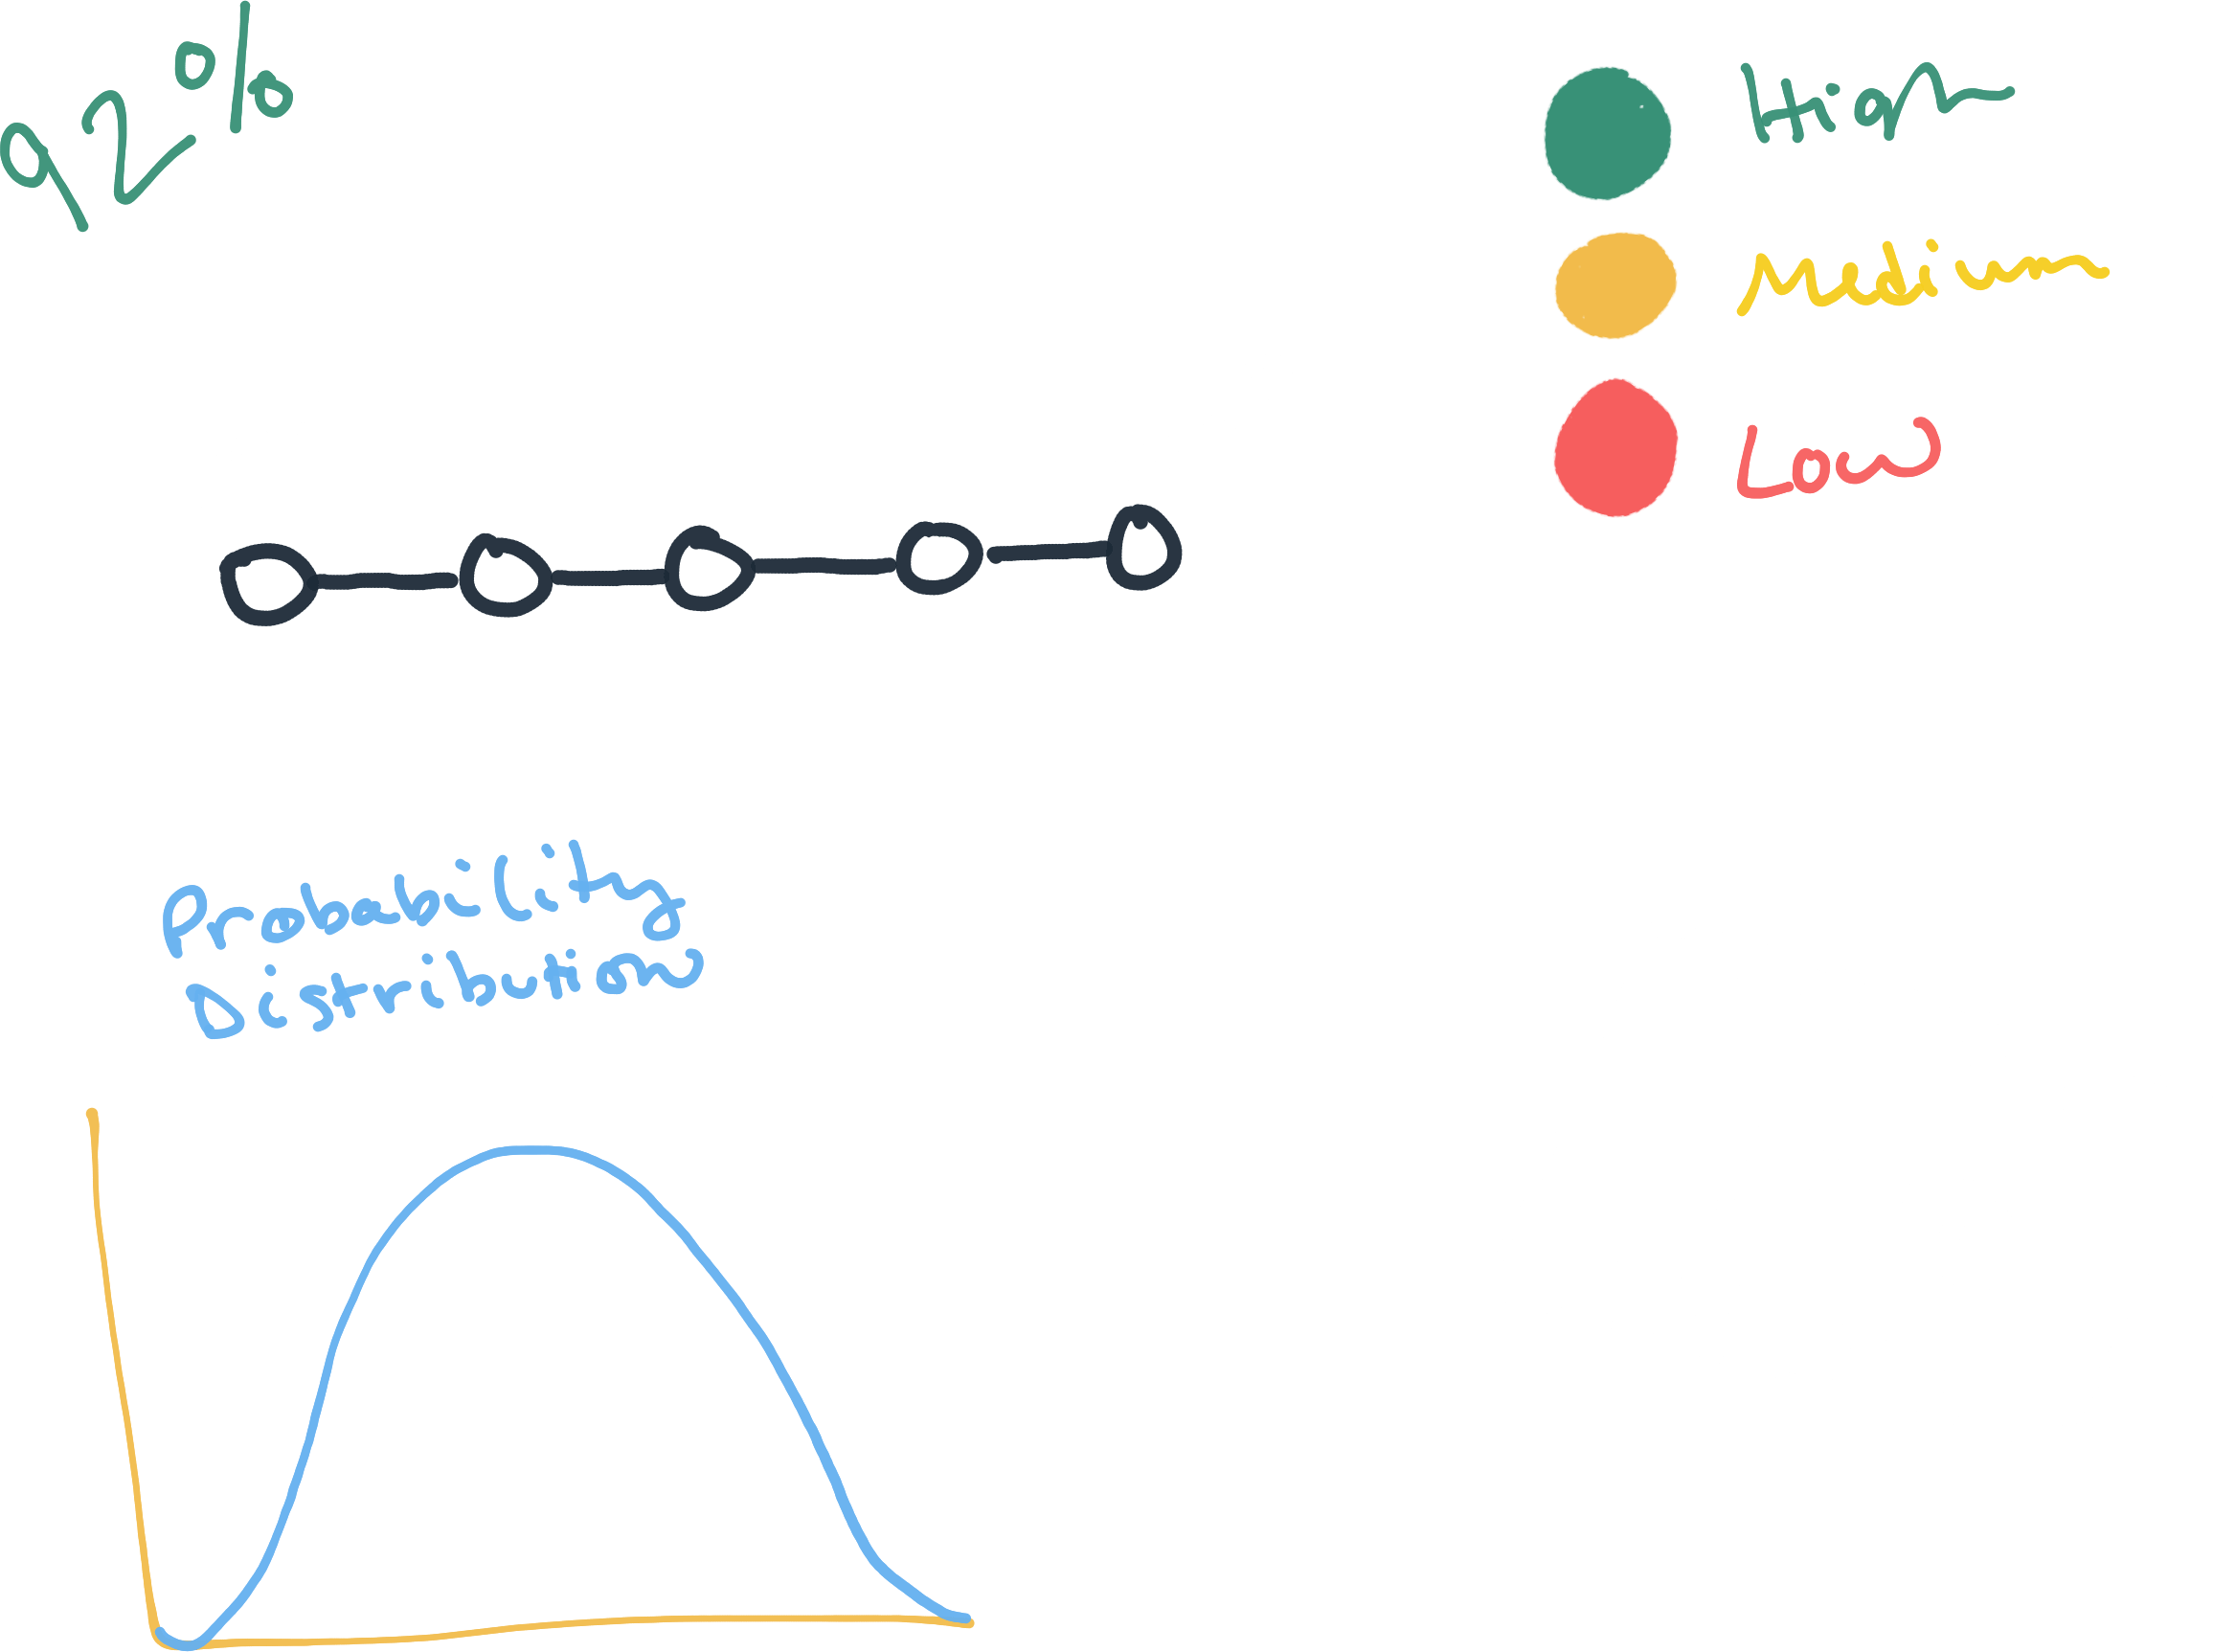 92%
High
Medium
Low
Probability
Distribution